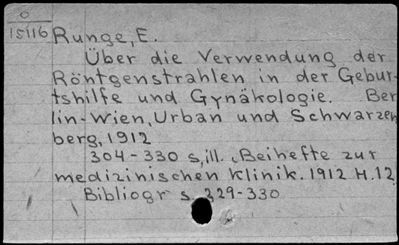 0
15116 Runge, E.
Über die Verwendung der
Röntgenstrahlen in der Gebur-
tshilfe und Gynäkologie. Ber
lin-Wien, Urban und Schwarzen
berg, 1912
304-330 s, ill. "Beihefte zur
medizinischen Klinik. 1912 H. 12.
Bibliogr s. 329-330